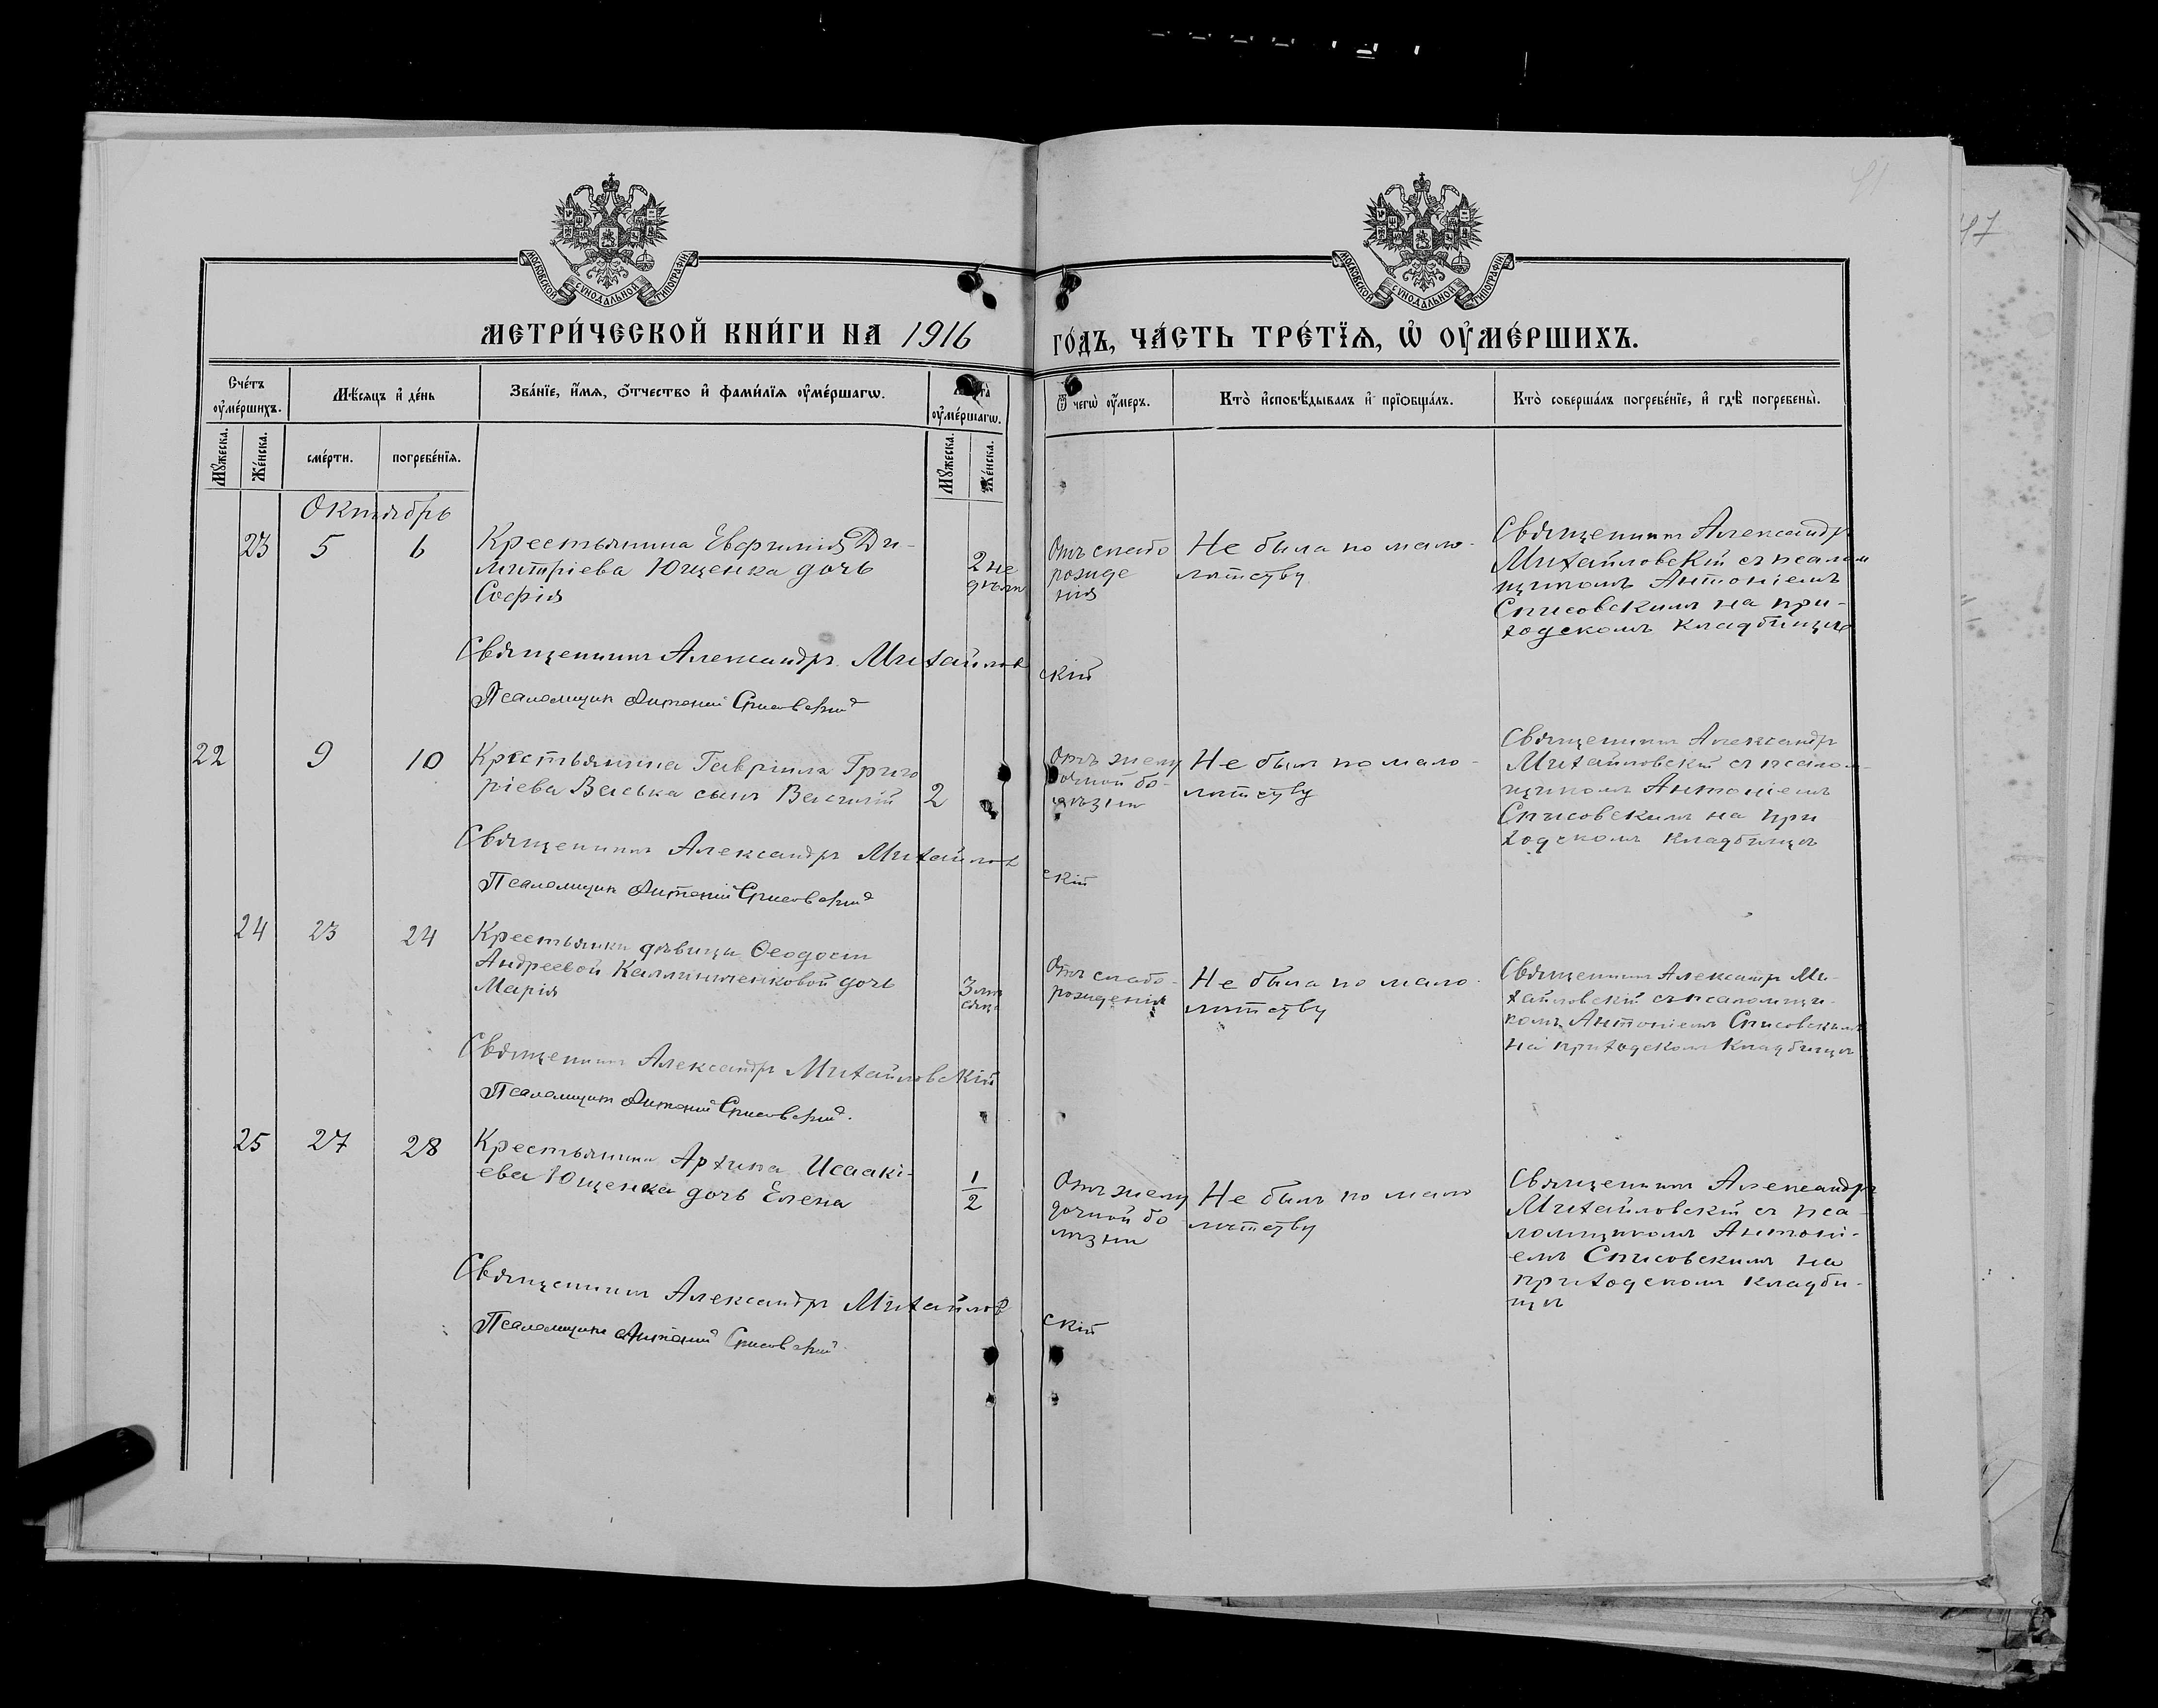 МОСКОВСКОЙ СѴНОДАЛЬНОЙ ТИПОГРАФІИ
МОСКОВСКОЙ СѴНОДАЛЬНОЙ ТИПОГРАФІИ
МЕТРИ́ЧЕСКОЙ КНИ́ГИ НА 1916 ГО́ДЪ, ЧА́СТЬ ТРЕ́ТЇѦ, Ѡ҆ ОУ҆МЕ́РШИХЪ.
Сче́тъ оу҆ме́ршихъ.
Мѣ́сяцъ и҆ де́нь
Зва́нїе, и҆́мѧ, ѻ҆́тчество и҆ фами́лїѧ оу҆ме́ршагѡ.
оу҆ме́ршагѡ.
Ѿ чегѡ̀ оу҆́меръ.
Кто̀ и҆сповѣ́дывалъ и҆ прїѡбща́лъ.
Кто̀ соверша́лъ погребе́нїе, и҆ гдѣ̀ погребены̀.
Мꙋ́жеска.
Же́нска.
сме́рти.
погребе́нїѧ.
Мꙋ́жеска.
Же́нска.
Октябрь
23 5 6
Крестьянина Евфимія Ди-
митріева Ющенка дочь
Софія
2 не
дѣли
Отъ слабо
рожде
нія
Не была по мало-
лѣтству
Священникъ Александръ
Михайловскій съ псалом
щикомъ Антоніемъ
Списовскимъ на при-
ходскомъ кладбищѣ
Священникъ Александръ Михайлов
скій
Псаломщик Антоній Списовскій
22 9 10
Крестьянина Гавріила Григо
ріева сынъ
2
Отъ желу
дочной бо-
лѣзни
Не былъ по мало-
лѣтству
Священникъ Александръ
Михайловскій съ псалом-
щикомъ Антоніемъ
Списовскимъ на при
ходскомъ кладбищѣ
Священникъ Александръ Михайлов
скій
Псаломщик Антоній Списовскій
24 23 24
Крестьянки дѣвицы Ѳеодосіи
Андреевой Калиниченковой дочь
Марія
3 мѣ
сяца
Отъ слабо-
рожденія
Не была по мало-
лѣтству
Священникъ Александръ Ми-
хайловскій съ псаломщи-
комъ Антоніемъ Списовскимъ
на приходскомъ кладбищѣ
Священникъ Александръ Михайловскій
Псаломщик Антоній Списовскій.
25 27 28
Крестьянина Архипа Исаакі-
ева Ющенка дочь Елена
1
2
Отъ желу
дочной бо
лѣзни
Не былъ по мало
лѣтству
Священникъ Александръ
Михайловскій съ пса-
ломщикомъ Антоні-
емъ Списовскимъ на
приходскомъ кладби-
щѣ
Священникъ Александръ Михайлов
скій
Псаломщик Антоній Списовскій